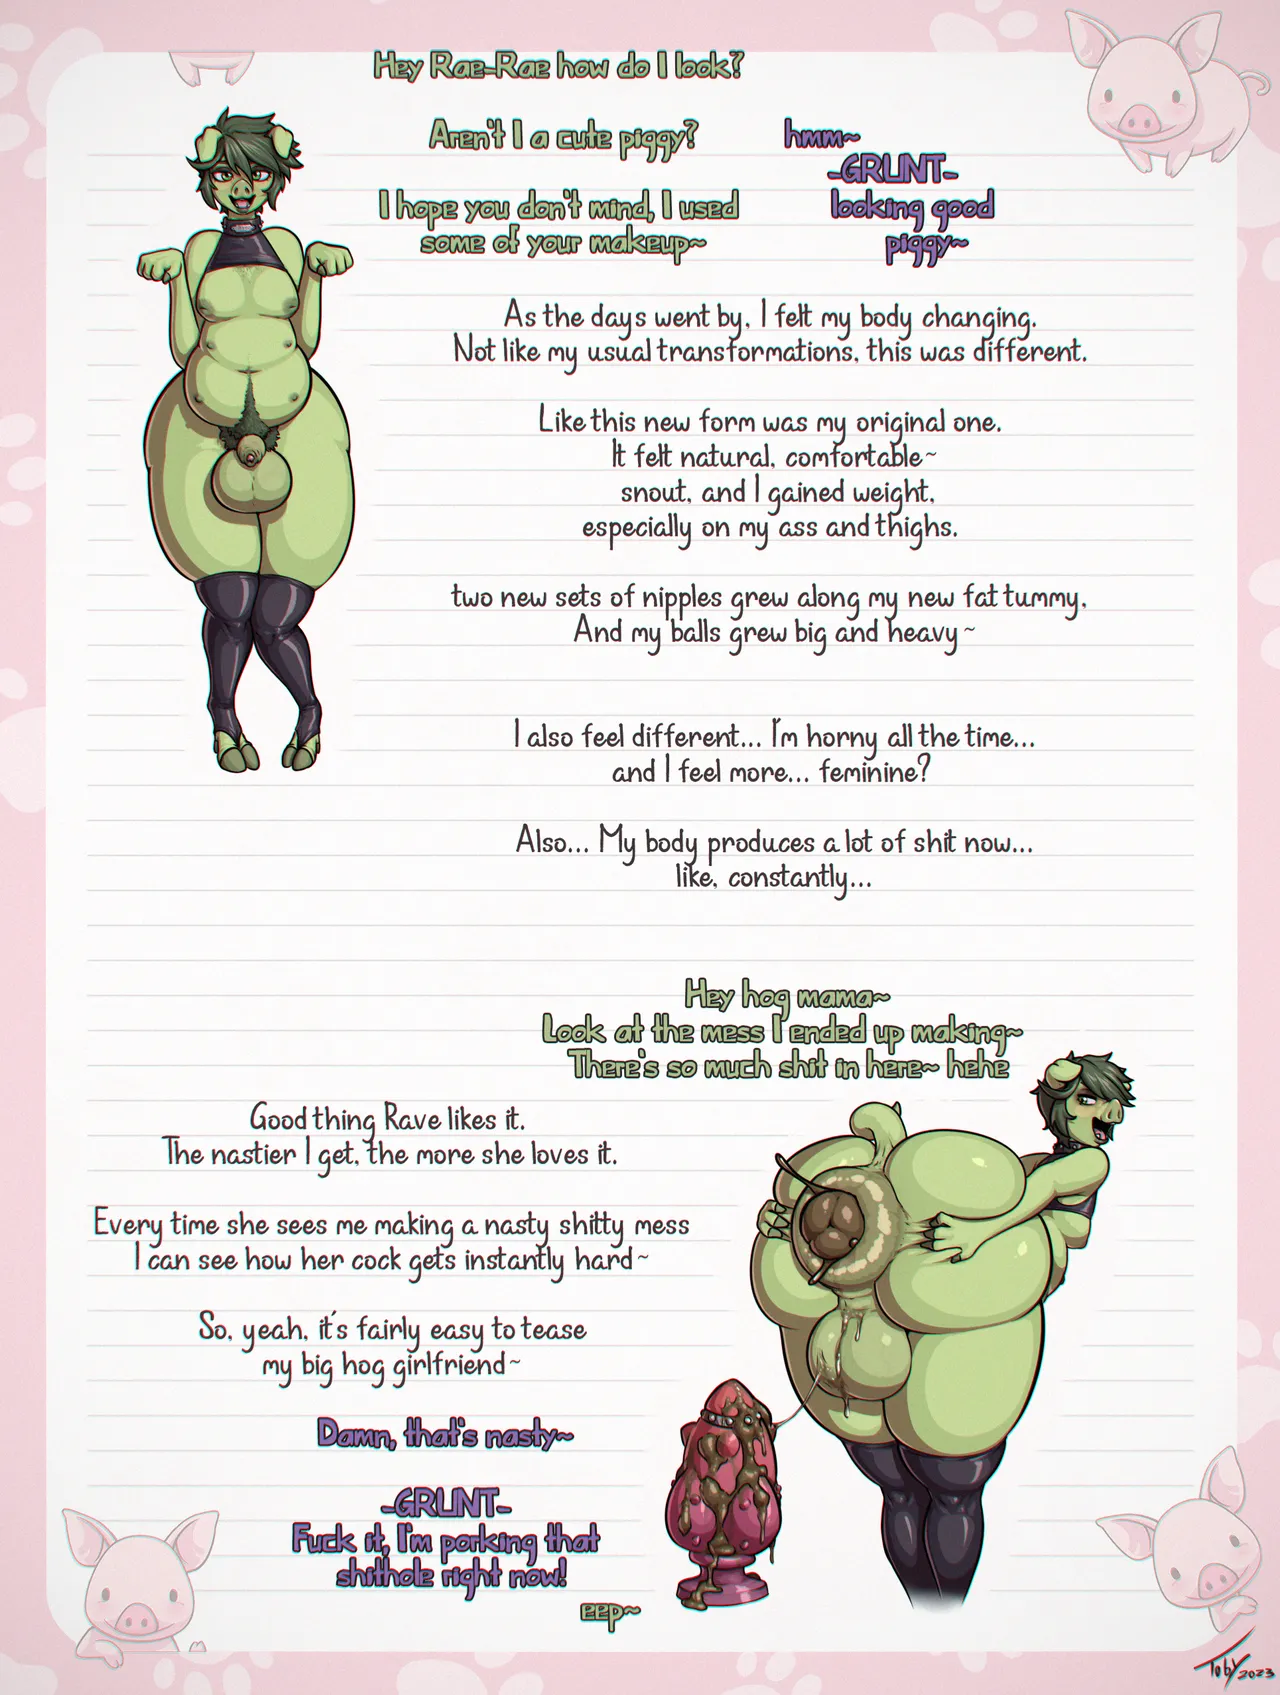 Hey Rae-Rae how do I look?
Aren't I a cute piggy?
I hope you don't mind, I used
some of your makeup~
hmm~
-GRUNT-
looking good
piggy~
As the days went by, I felt my body changing.
Not like my usual transformations, this was different.
Like this new form was my original one.
It felt natural, comfortable~
snout, and I gained weight,
especially on my ass and thighs.
two new sets of nipples grew along my new fat tummy,
And my balls grew big and heavy~
I also feel different... I'm horny all the time...
and I feel more... feminine?
Also... My body produces a lot of shit now...
like, constantly...
Hey hog mama~
Look at the mess I ended up making~
There's so much shit in here~ hehe
Good thing Rave likes it.
The nastier I get, the more she loves it.
Every time she sees me making a nasty shitty mess
I can see how her cock gets instantly hard~
So, yeah, it's fairly easy to tease
my big hog girlfriend~
Damn, that's nasty~
-GRUNT-
Fuck it, I'm porking that
shithole right now!
eep~
Toby 2023